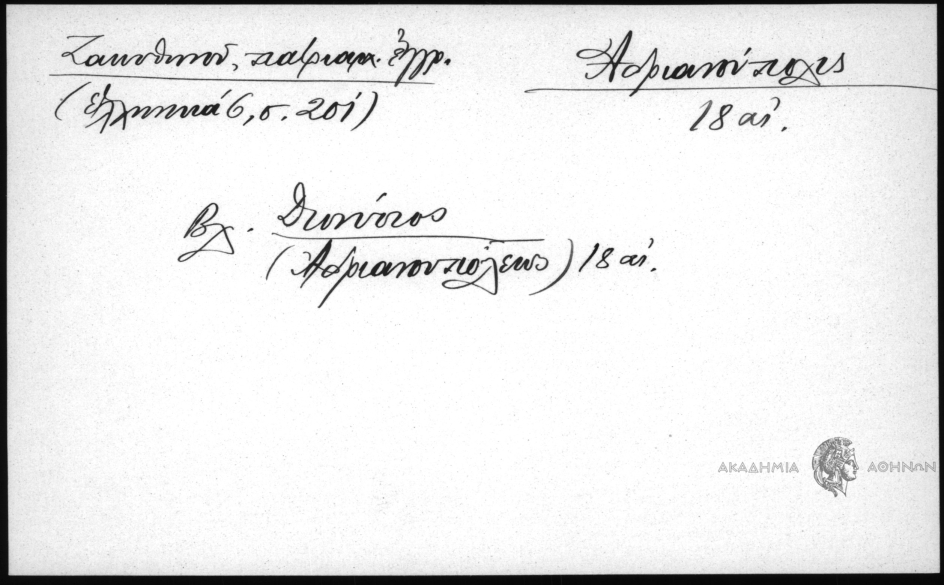 Ζακυθηνοῦ, πατριαρχ. ἔγγρ.
(Ἑλληνικά 6, σ. 201)
Ἀδριανούπολις
18 αἰ.
Βλ. Διονύσιος
(Ἀδριανουπόλεως) 18 αἰ.
ΑΚΑΔΗΜΙΑ ΑΘΗΝΩΝ